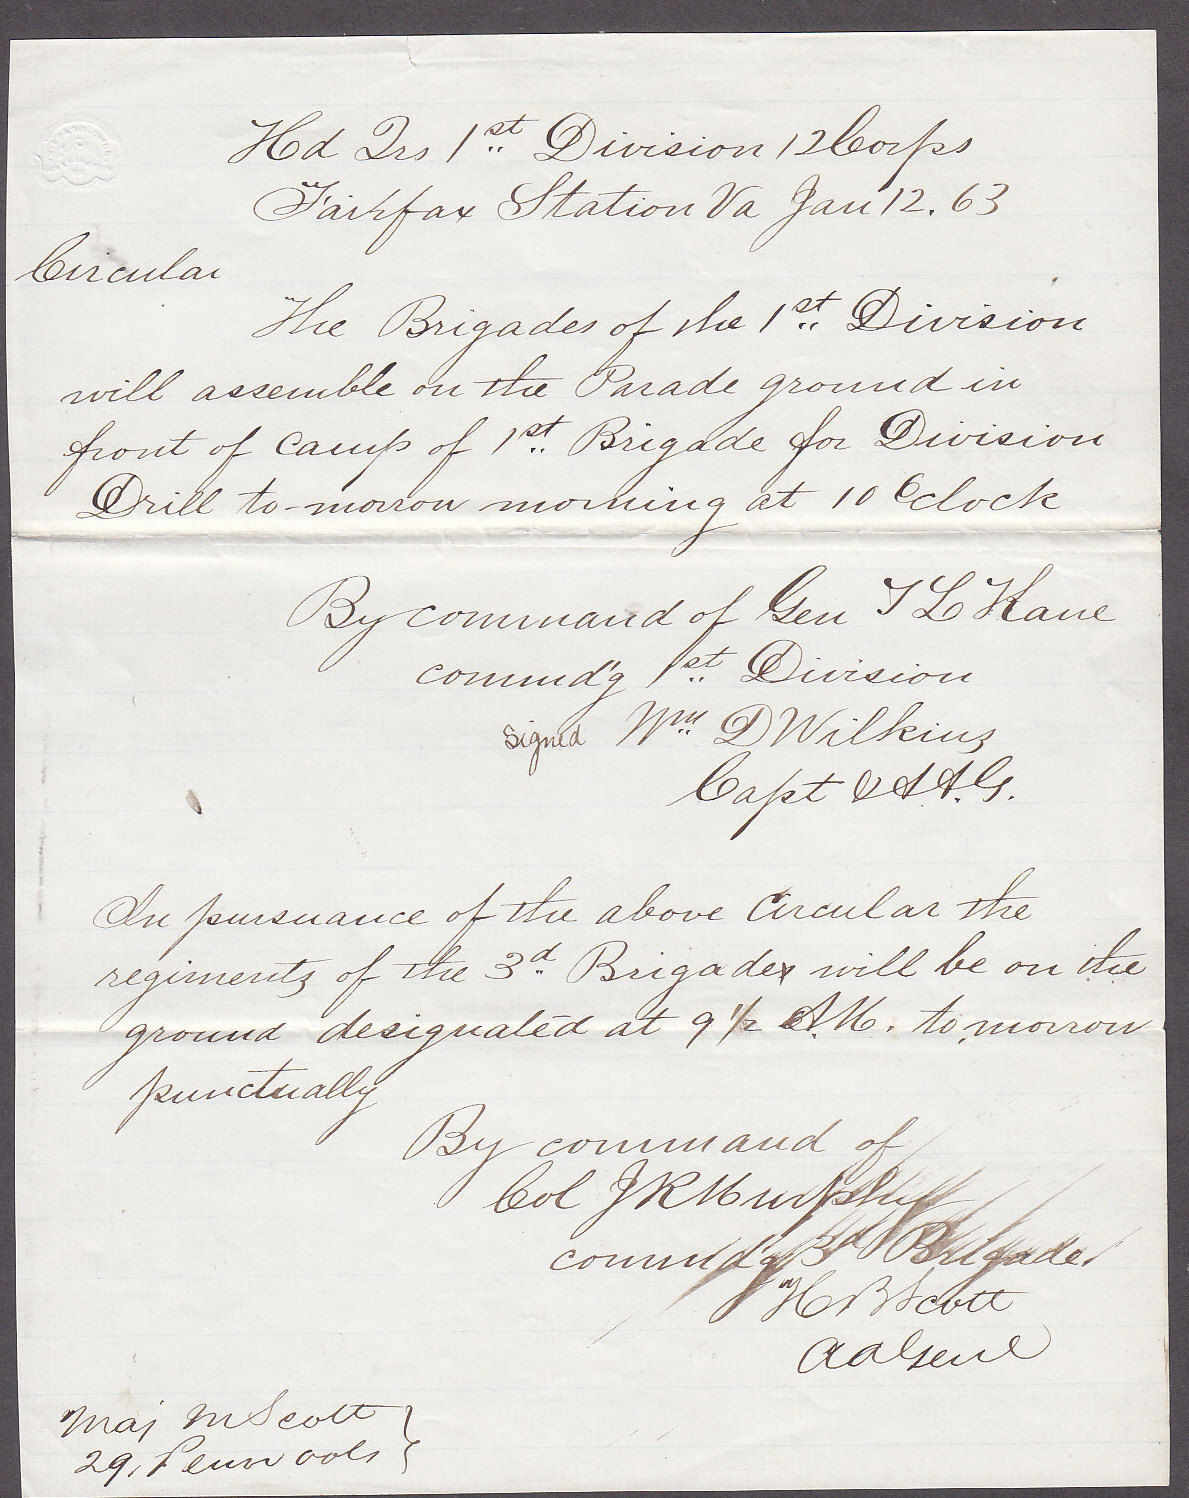 Hd Qrs 1st Division 12 Corps
Fairfax Station Va Jan 12. 63
Circular
The Brigades of the 1st Division
will assemble on the Parade ground in
front of camp of 1st Brigade for Division
Drill to-morrow morning at 10 Oclock
By command of Gen T L Kane
commd'g 1st Division
signed Wm D Wilkins
Capt & A A. G.
In pursuance of the above Circular the
regiments of the 3d Brigade will be on the
ground designated at 9 1/2 A.M. to morrow
punctually
By command of
Col J R Murphy
commd'g 3d Brigade.
H B Scott
A A Genl
Maj M Scott
29, Penn vols